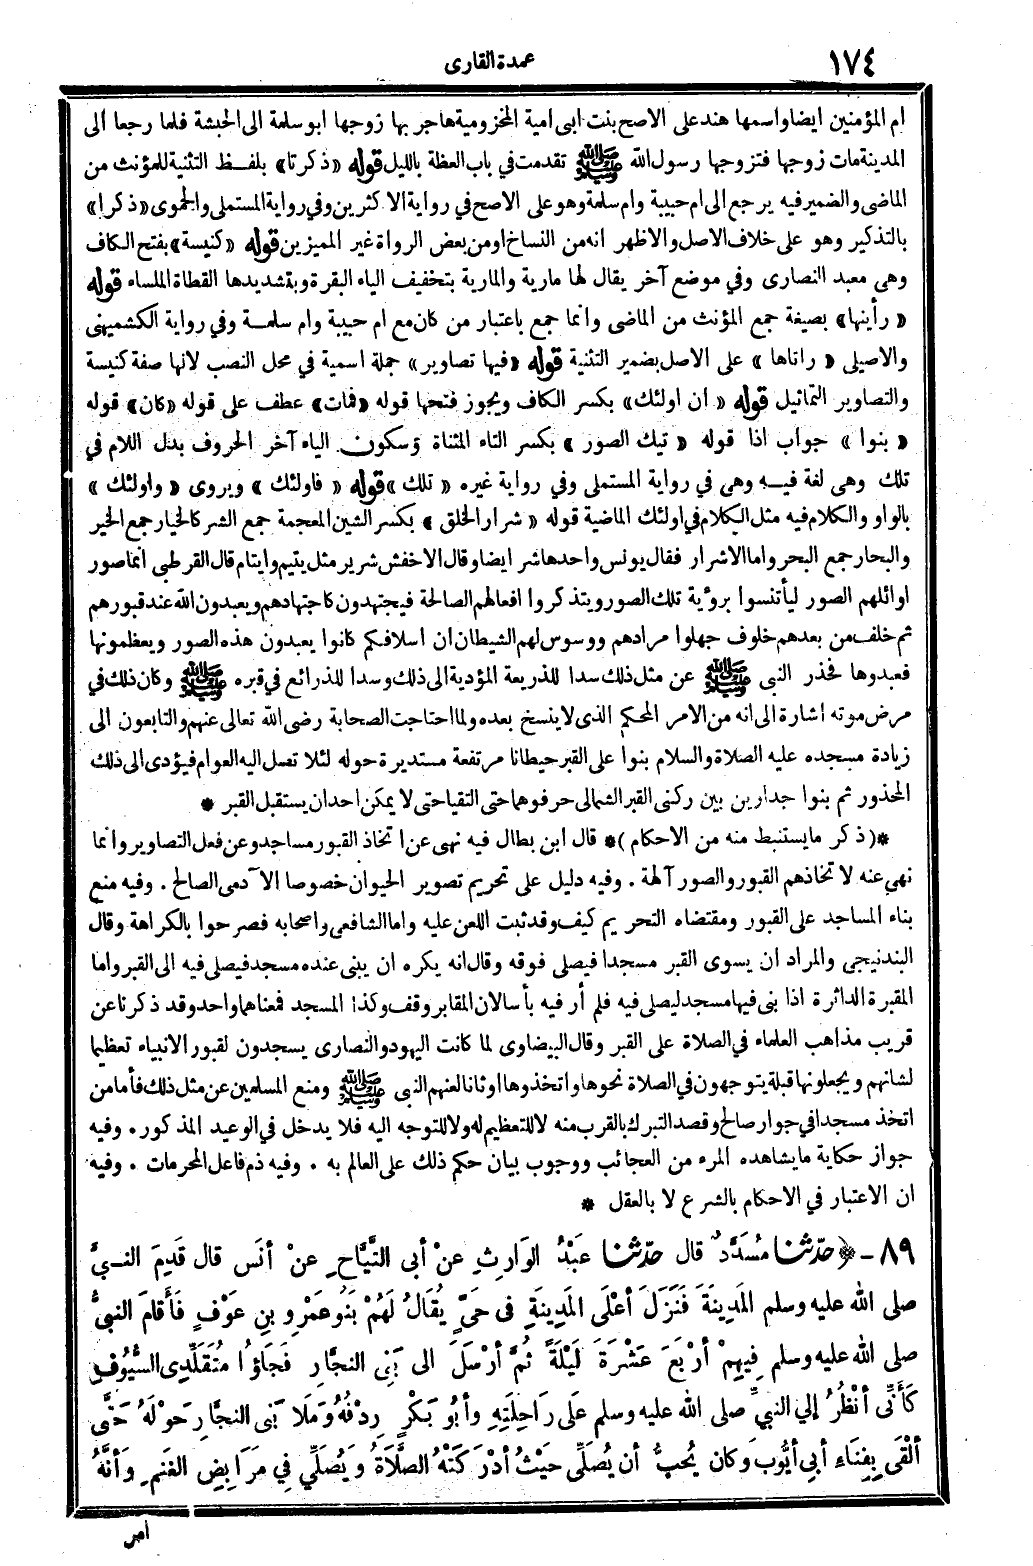 ١٧٤
عمدة القارى
ام المؤمنين ايضا واسمها هند على الاصح بنت ابى امية المخزومية هاجر بها زوجها ابو سلمة الى الحبشة فلما رجعا الى
المدينة مات زوجها فتزوجها رسول الله ﷺ تقدمت في باب العظة بالليل قوله «ذكرتا» بلفظ التثنية للمؤنث من
الماضى والضمير فيه يرجع الى ام حبيبة وام سلمة وهو على الاصح في رواية الاكثرين وفي رواية المستملى والحموى «ذكرا»
بالتذكير وهو على خلاف الاصل والاظهر انه من النساخ او من بعض الرواة غير المميزين قوله «كنيسة» بفتح الكاف
وهى معبد النصارى وفي موضع آخر يقال لها مارية والمارية بتخفيف الياء البقرة وبتشديدها القطاة الملساء قوله
«رأينها» بصيغة جمع المؤنث من الماضى وانما جمع باعتبار من كان مع ام حبيبة وام سلمة وفي رواية الكشميهنى
والاصيلى «راتاها» على الاصل بضمير التثنية قوله «فيها تصاوير» جملة اسمية في محل النصب لانها صفة كنيسة
والتصاوير التماثيل قوله «ان اولئك» بكسر الكاف ويجوز فتحها قوله «فمات» عطف على قوله «كان» قوله
«بنوا» جواب اذا قوله «تيك الصور» بكسر التاء المثناة وسكون الياء آخر الحروف بدل اللام في
تلك وهى لغة فيه وهى في رواية المستملى وفي رواية غيره «تلك» قوله «فاولئك» ويروى «واولئك»
بالواو والكلام فيه مثل الكلام في اولئك الماضية قوله «شرار الخلق» بكسر الشين المعجمة جمع الشر كالخيار جمع الخير
والبحار جمع البحر واما الاشرار فقال يونس واحدها شر ايضا وقال الاخفش شرير مثل يتيم وايتام قال القرطبي انما صور
اوائلهم الصور ليأتنسوا برؤية تلك الصور ويتذكروا افعالهم الصالحة فيجتهدون كاجتهادهم ويعبدون الله عند قبورهم
ثم خلف من بعدهم خلوف جهلوا مرادهم ووسوس لهم الشيطان ان اسلافكم كانوا يعبدون هذه الصور ويعظمونها
فعبدوها فحذر النبى ﷺ عن مثل ذلك سدا للذريعة المؤدية الى ذلك وسدا للذرائع في قبره ﷺ وكان ذلك في
مرض موته اشارة الى انه من الامر المحكم الذى لا ينسخ بعده ولما احتاجت الصحابة رضى الله تعالى عنهم والتابعون الى
زيادة مسجده عليه الصلاة والسلام بنوا على القبر حيطانا مرتفعة مستديرة حوله لئلا تصل اليه العوام فيؤدى الى ذلك
المحذور ثم بنوا جدارين بين ركنى القبر الشمالى حرفوهما حتى التقيا حتى لا يمكن احد ان يستقبل القبر *
*(ذكر ما يستنبط منه من الاحكام)* قال ابن بطال فيه نهى عن اتخاذ القبور مساجد وعن فعل التصاوير وانما
نهى عنه لاتخاذهم القبور والصور آلهة . وفيه دليل على تحريم تصوير الحيوان خصوصا الآدمى الصالح . وفيه منع
بناء المساجد على القبور ومقتضاه التحريم كيف وقد ثبت اللعن عليه واما الشافعى واصحابه فصرحوا بالكراهة وقال
البندنيجى والمراد ان يسوى القبر مسجدا فيصلى فوقه وقال انه يكره ان يبنى عنده مسجد فيصلى فيه الى القبر واما
المقبرة الداثرة اذا بنى فيها مسجد ليصلى فيه فلم أر فيه بأسا لان المقابر وقف وكذا المسجد فمعناهما واحد وقد ذكرنا عن
قريب مذاهب العلماء في الصلاة على القبر وقال البيضاوى لما كانت اليهود والنصارى يسجدون لقبور الانبياء تعظيما
لشانهم ويجعلونها قبلة يتوجهون في الصلاة نحوها واتخذوها اوثانا لعنهم النبى ﷺ ومنع المسلمين عن مثل ذلك فأما من
اتخذ مسجدا في جوار صالح وقصد التبرك بالقرب منه لا للتعظيم له ولا للتوجه اليه فلا يدخل في الوعيد المذكور . وفيه
جواز حكاية ما يشاهده المرء من العجائب ووجوب بيان حكم ذلك على العالم به . وفيه ذم فاعل المحرمات . وفيه
ان الاعتبار في الاحكام بالشرع لا بالعقل *
٨٩ - ﴿حدثنا مُسَدَّدٌ قال حدثنا عَبْدُ الوَارِثِ عنْ أبى التَّيَّاحِ عنْ أنَس قال قَدِمَ النبيُّ
صلى الله عليه وسلم المَدِينَةَ فَنَزَلَ أعْلَى المَدِينَةِ فى حَىٍّ يُقَالُ لَهُمْ بَنُو عَمْرِو بنِ عَوْفٍ فَأَقامَ النبىُّ
صلى الله عليه وسلم فِيهِمْ أرْبَعَ عَشْرَةَ لَيْلَةً ثُمَّ أرْسَلَ الى بَنِى النجَّارِ فَجَاؤُا مُتَقَلِّدِى السُّيُوفِ
كَأَنِّى أنْظُرُ إلي النبيِّ صلى الله عليه وسلم علَى رَاحِلَتِهِ وأبُو بَكْرٍ رِدْفُهُ وَمَلَأ بَنِى النجَّارِ حَوْلَهُ حَتَّى
ألْقَى بِفِنَاءِ أبِي أيُّوبَ وكان يُحِبُّ أن يُصَلِّىَ حَيْثُ أدْرَكَتْهُ الصَّلَاةُ وَيُصَلِّي فِي مَرَابِضِ الغَنَمِ وَأنَّهُ
امر